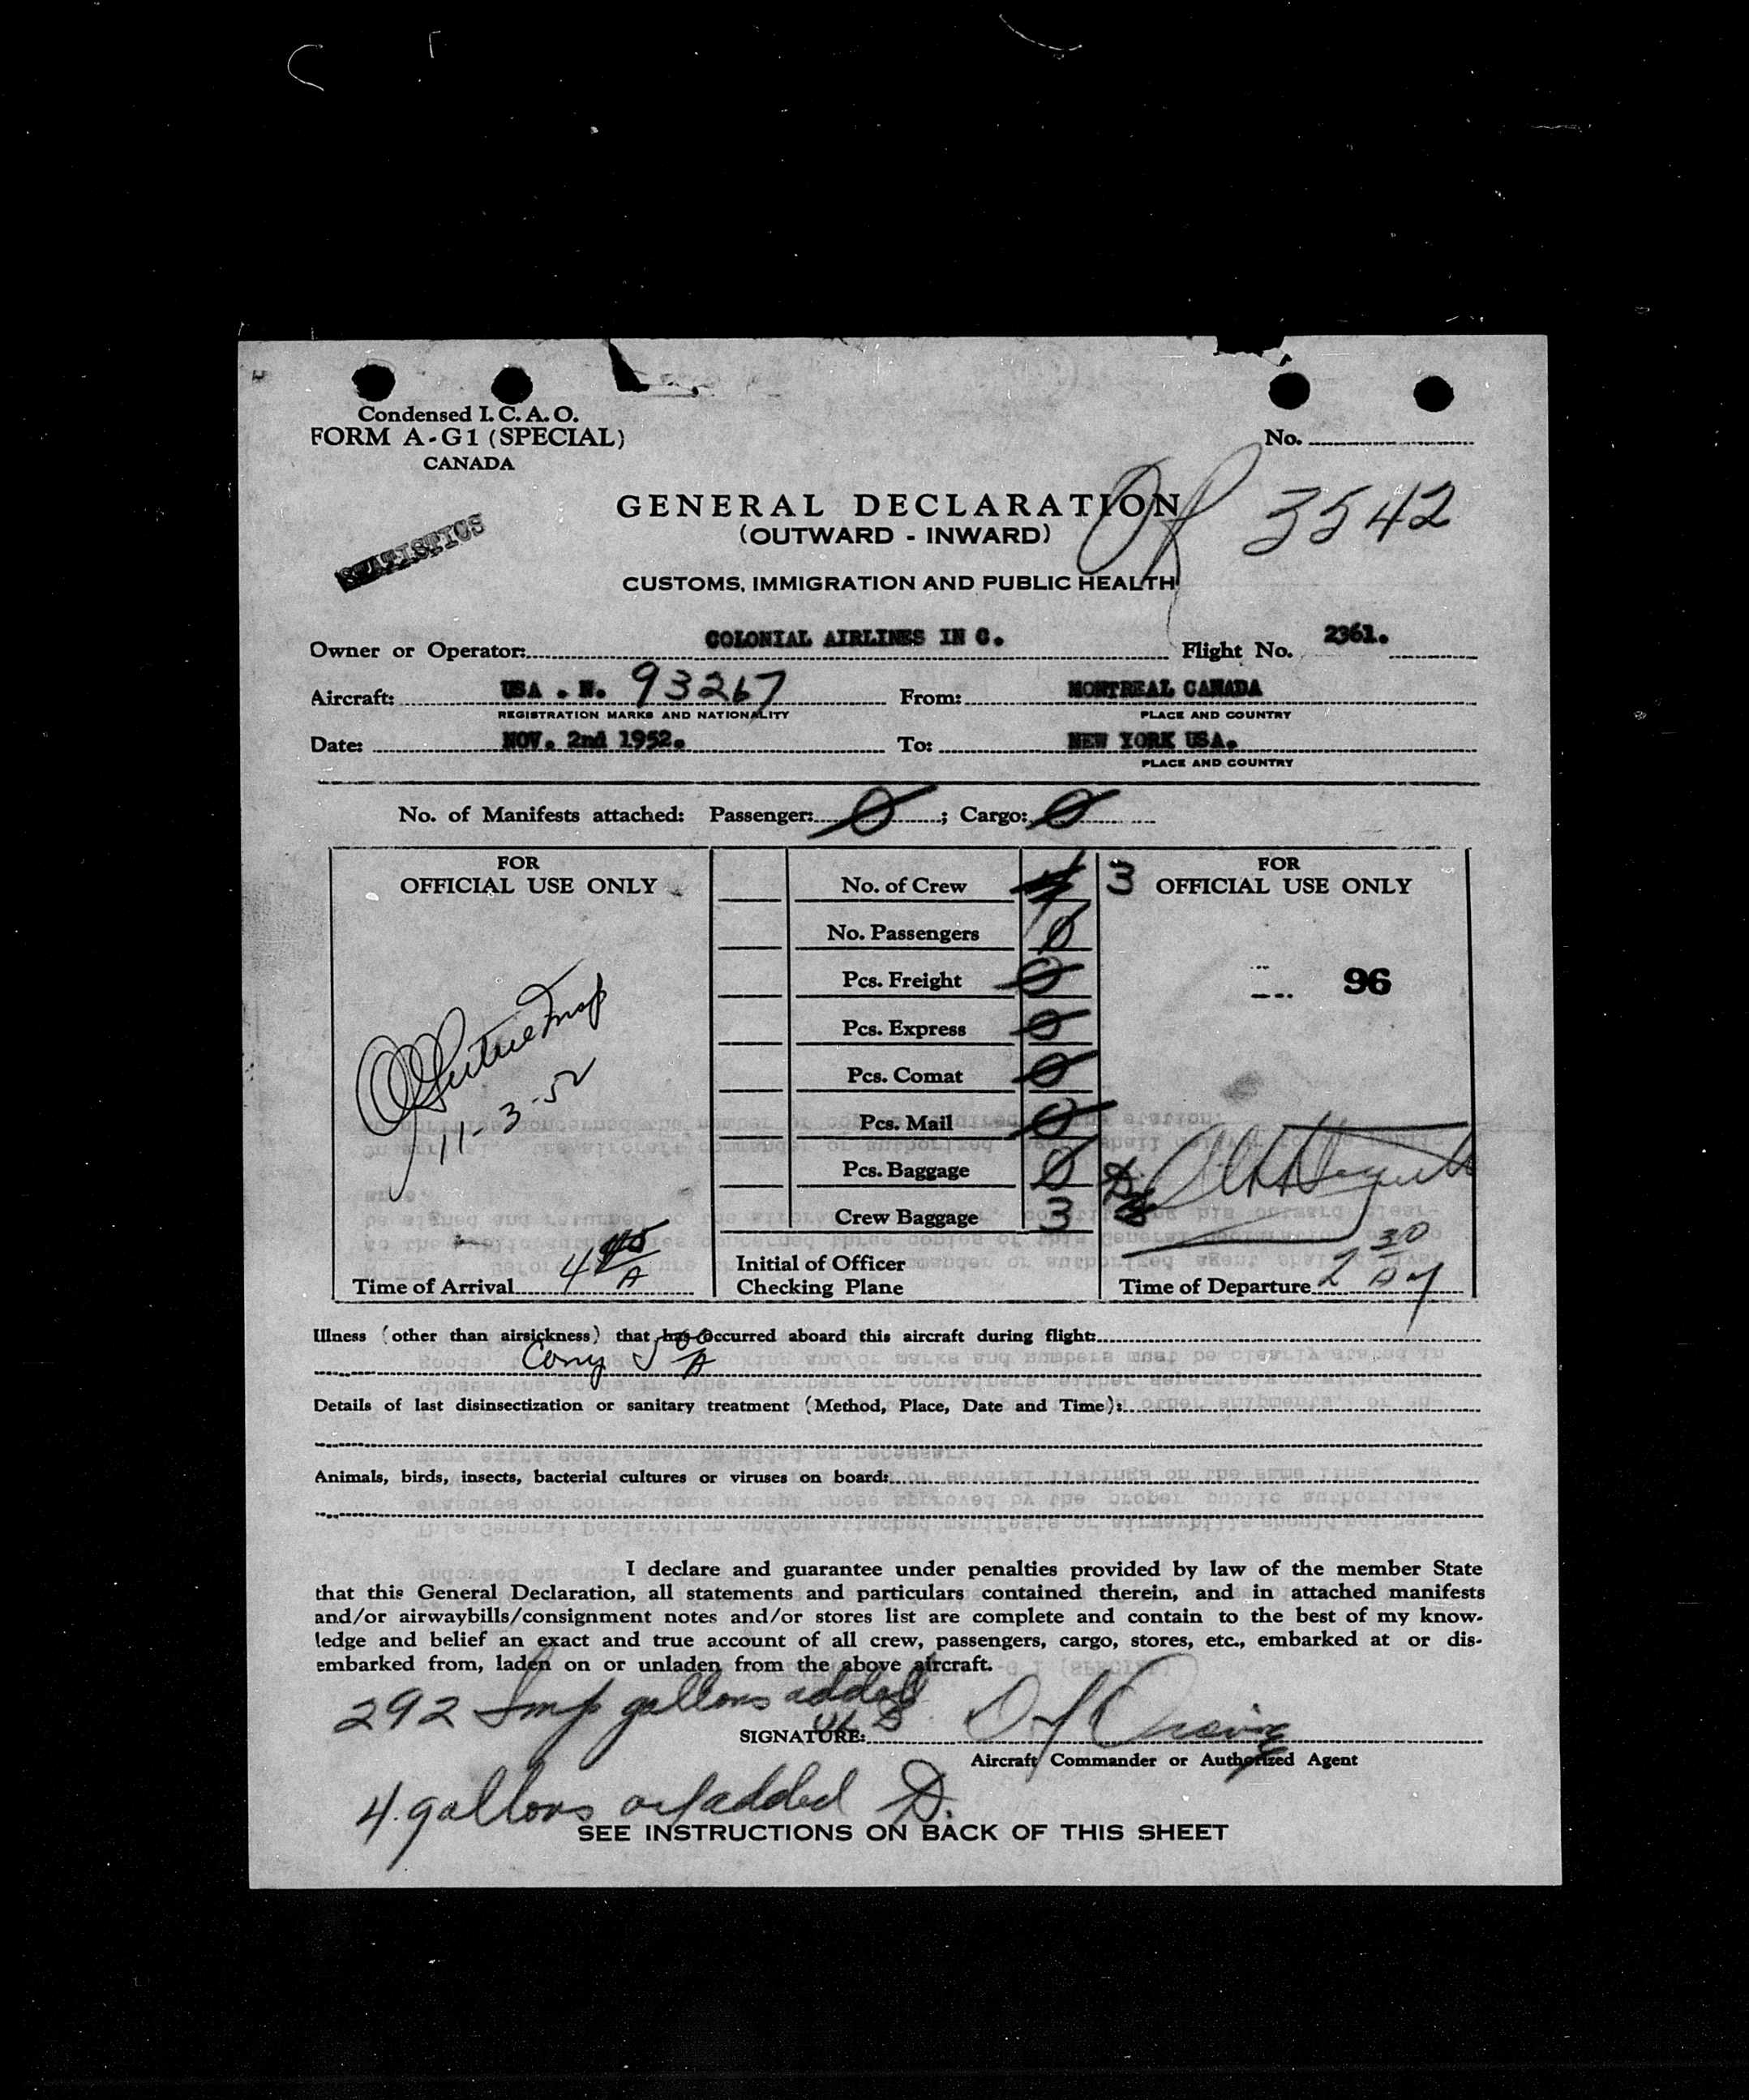 Condensed I. C. A. O.
FORM A-G1 (SPECIAL)
CANADA
No.
3542
GENERAL DECLARATION
(OUTWARD - INWARD)
STATISTICS
CUSTOMS, IMMIGRATION AND PUBLIC HEALTH
Owner or Operator: COLONIAL AIRLINES IN C. Flight No. 2361.
Aircraft: USA . N. 93267 From: MONTREAL CANADA
REGISTRATION MARKS AND NATIONALITY PLACE AND COUNTRY
Date: NOV. 2nd 1952. To: NEW YORK USA.
PLACE AND COUNTRY
No. of Manifests attached: Passenger: 0 ; Cargo: 0
FOR
OFFICIAL USE ONLY
11-3-52
Time of Arrival 4 45 A
No. of Crew 4 3
No. Passengers 0
Pcs. Freight 0
Pcs. Express 0
Pcs. Comat 0
Pcs. Mail 0
Pcs. Baggage 0
Crew Baggage 3
Initial of Officer
Checking Plane
FOR
OFFICIAL USE ONLY
96
Time of Departure 2 30 AM
Illness (other than airsickness) that has occurred aboard this aircraft during flight:
500 A
Details of last disinsectization or sanitary treatment (Method, Place, Date and Time):
Animals, birds, insects, bacterial cultures or viruses on board:
I declare and guarantee under penalties provided by law of the member State
that this General Declaration, all statements and particulars contained therein, and in attached manifests
and/or airwaybills/consignment notes and/or stores list are complete and contain to the best of my know-
ledge and belief an exact and true account of all crew, passengers, cargo, stores, etc., embarked at or dis-
embarked from, laden on or unladen from the above aircraft.
292 Imp gallons added
SIGNATURE:
Aircraft Commander or Authorized Agent
4 gallons oil added D.
SEE INSTRUCTIONS ON BACK OF THIS SHEET